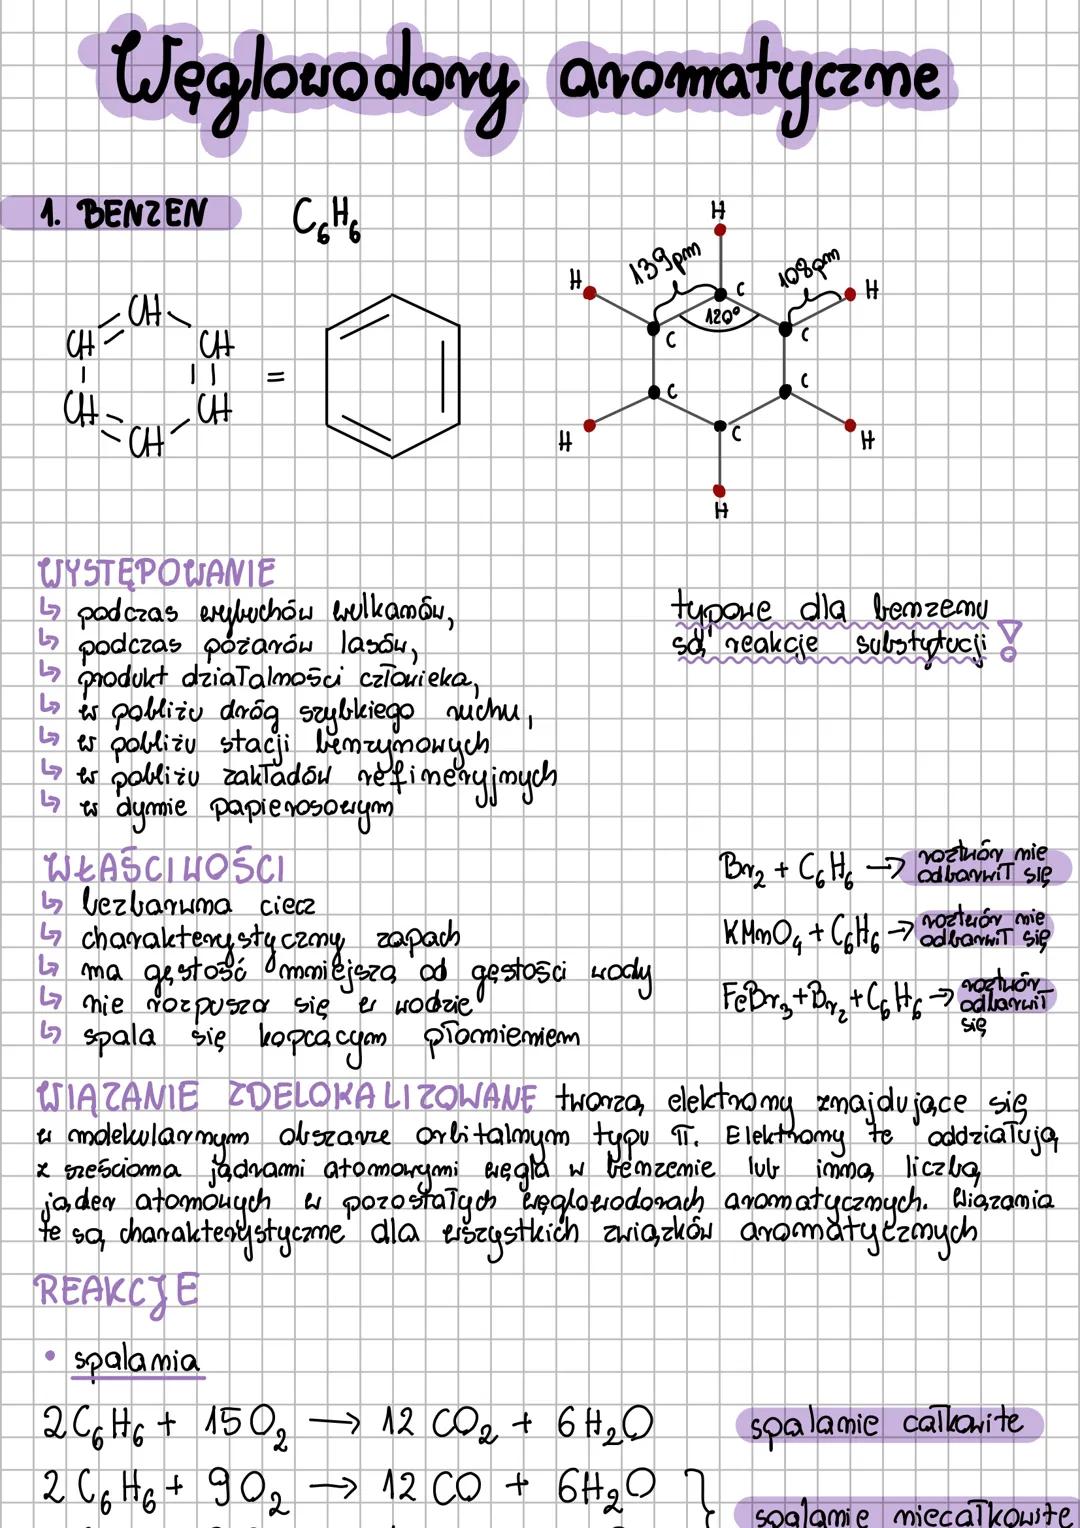 Węglowodory aromatyczne
1. BENZEN C₆H₆
CH
CH
CH
CH
CH
CH
=
H
H
139pm
108pm
H
C
120°
C
C
C
C
C
H
H
H
WYSTĘPOWANIE
↳ podczas wybuchów wulkanów,
↳ podczas pożarów lasów,
↳ produkt działalności człowieka,
↳ w pobliżu dróg szybkiego ruchu,
↳ w pobliżu stacji benzynowych
↳ w pobliżu zakładów rafineryjnych
↳ w dymie papierosowym
typowe dla benzenu
są reakcje substytucji !
WŁAŚCIWOŚCI
↳ bezbarwna ciecz
↳ charakterystyczny zapach
↳ ma gęstość mniejszą od gęstości wody
↳ nie rozpusza się w wodzie
↳ spala się kopcącym płomieniem
Br₂ + C₆H₆ → roztwór nie odbarwił się
KMnO₄ + C₆H₆ → roztwór nie odbarwił się
FeBr₃ + Br₂ + C₆H₆ → roztwór odbarwił się
WIĄZANIE ZDELOKALIZOWANE tworzą elektrony znajdujące się
w molekularnym obszarze orbitalnym typu π. Elektrony te oddziałują
z sześcioma jądrami atomowymi węgla w benzenie lub inną liczbą
jąder atomowych w pozostałych węglowodorach aromatycznych. Wiązania
te są charakterystyczne dla wszystkich związków aromatycznych
REAKCJE
• spalania
2C₆H₆ + 15O₂ → 12CO₂ + 6H₂O spalanie całkowite
2C₆H₆ + 9O₂ → 12CO + 6H₂O
spalanie niecałkowite